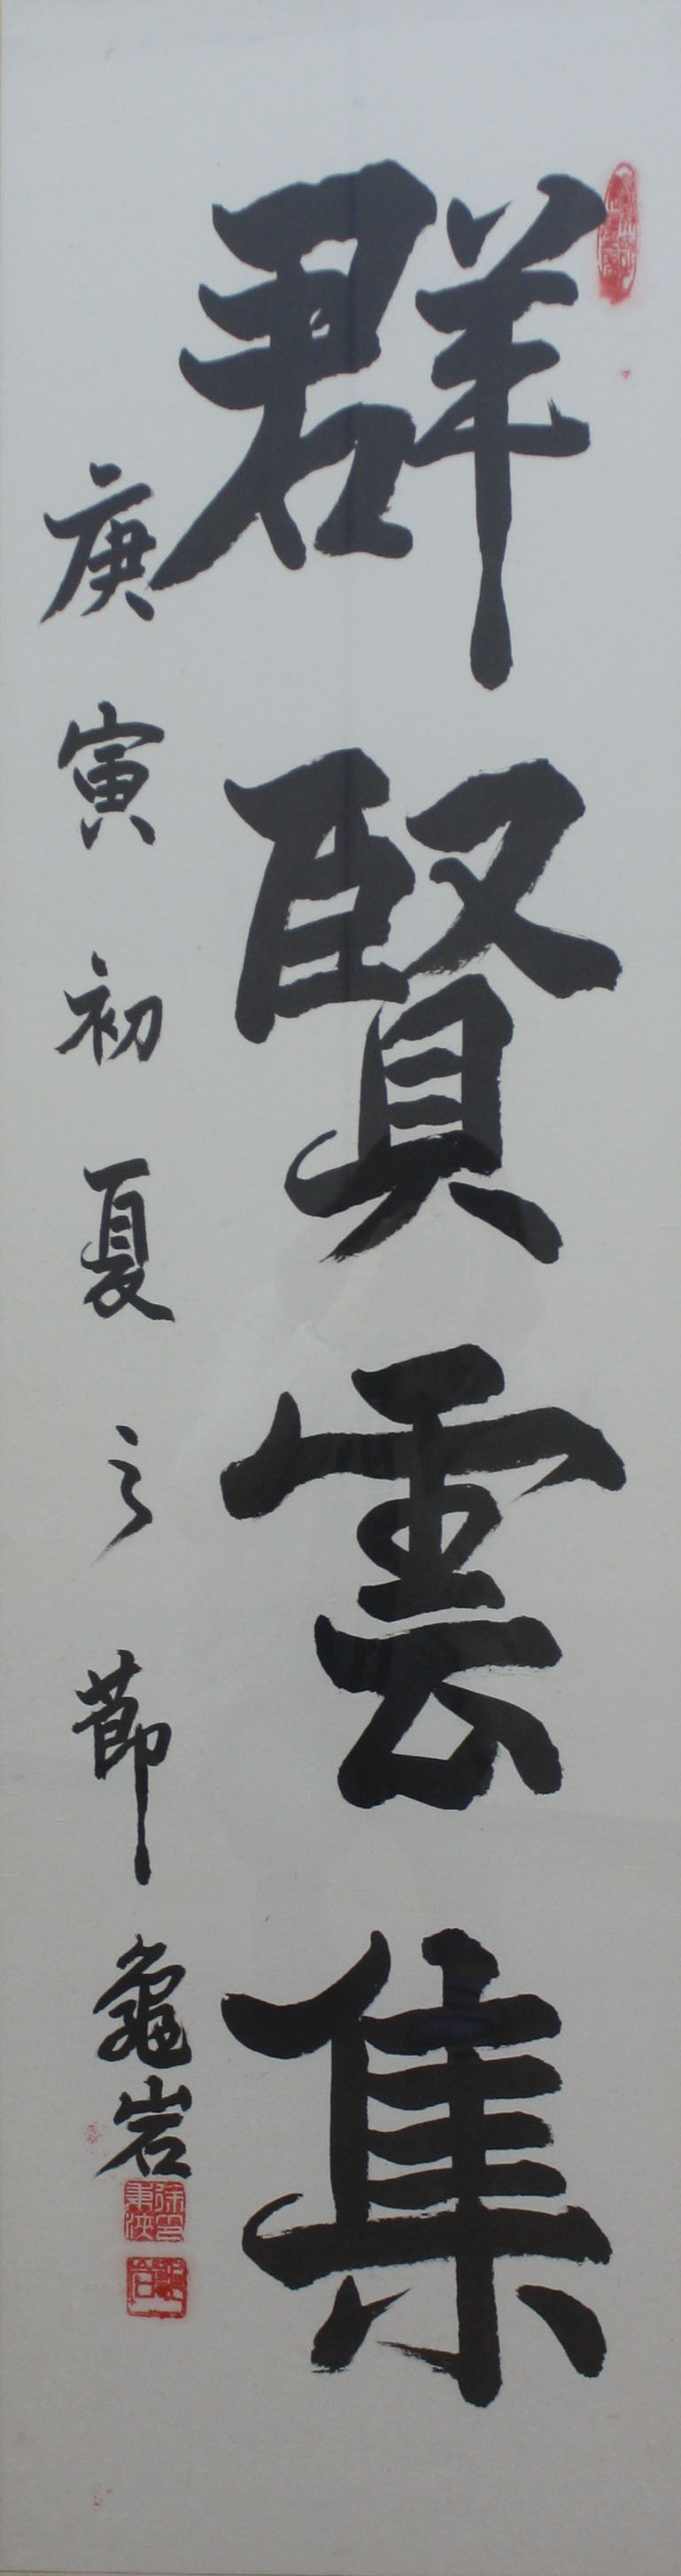 群賢雲集
庚寅初夏之節龜岩